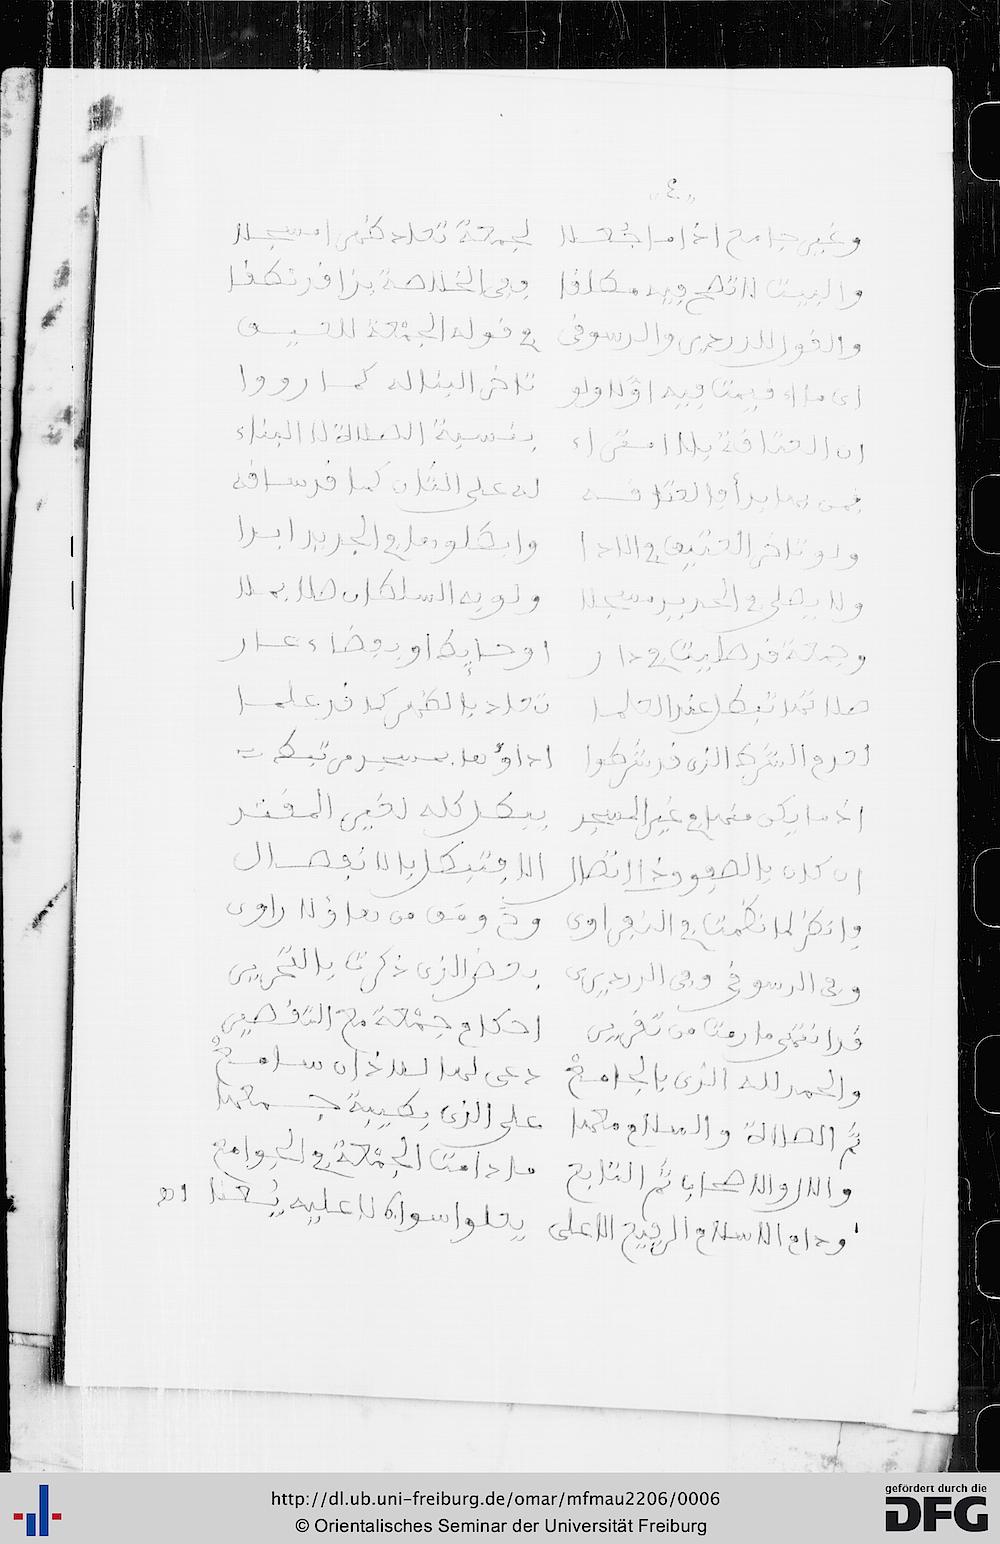 "٤"
وغير جامع اذا ما جُعلا لجمعة تعاد ظهرا مسجلا
والبيت لا تصح فيه مطلقا وفى الخلاصة بذا قد نطقا
والقول للدردير والدسوقى فى قوله الجمعة للعتيق
اى ما اقيمت فيه اوّلا ولو تاخر البناء له كما رووا
ان العتاقة بلا امتراء بنسبة الصلاة لا البناء
فمن بها بدأ والعتاقه له على الثان كما قد ساقه
ولو تاخر العتيق فى الادا وابطلوها فى الجديد ابدا
ولا يصلى فى الجديد مسجلا ولو به السلطان صلا بملا
وجمعة قد صليت فى دار او حايط او بفضاء عار
صلاتها تبطل عند العلما تعاد بالظهر كما قد علما
لعدم الشرط الذى قد شرطوا اداؤها بمسجد من
اذ ما يكن منها فى غير المسجد يبطل كله لغير المقتد
ان كان بالصفوف ذا اتصال الا فتبطل بالانفصال
وانظر لما نظمت فى النفراوى وخ ومق من
وفى الدسوقى وفى الدردير بعض الذى ذكرت بالتحرير
قد انتهى ما رمت من تقرير احكام جمعة مع التقصير
والحمد لله الذى بالجامع دعى لها لاذان سامع
ثم الصلاة والسلام معها على الذى بطيبة جمعها
والال والاصحاب ثم التابع ما دامت الجمعة فى الجوامع
ودام الاسلام الرفيع الاعلى يعلو سواه لا عليه يُعلا اه
http://dl.ub.uni-freiburg.de/omar/mfmau2206/0006
© Orientalisches Seminar der Universität Freiburg
gefördert durch die
DFG